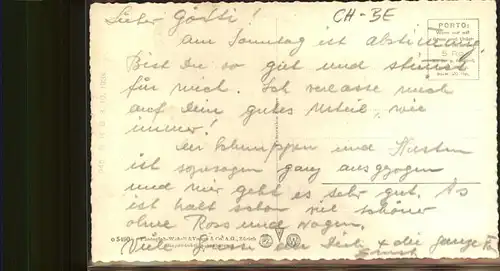 Lieber Götti!
CH-BE
am Sonntag ist abstimmung.
Bist Du so gut und stimmst
für mich. Ich verlasse mich
auf Dein gutes Urteil, wie
immer!
Der Schnuppen und Husten
ist sozusagen ganz ausgezogen
und mir geht es sehr gut. Es
ist halt schon viel schöner
ohne Ross und Wagen.
Viele Grüsse an Dich & die ganze
Ernst
PORTO:
5 Rp.